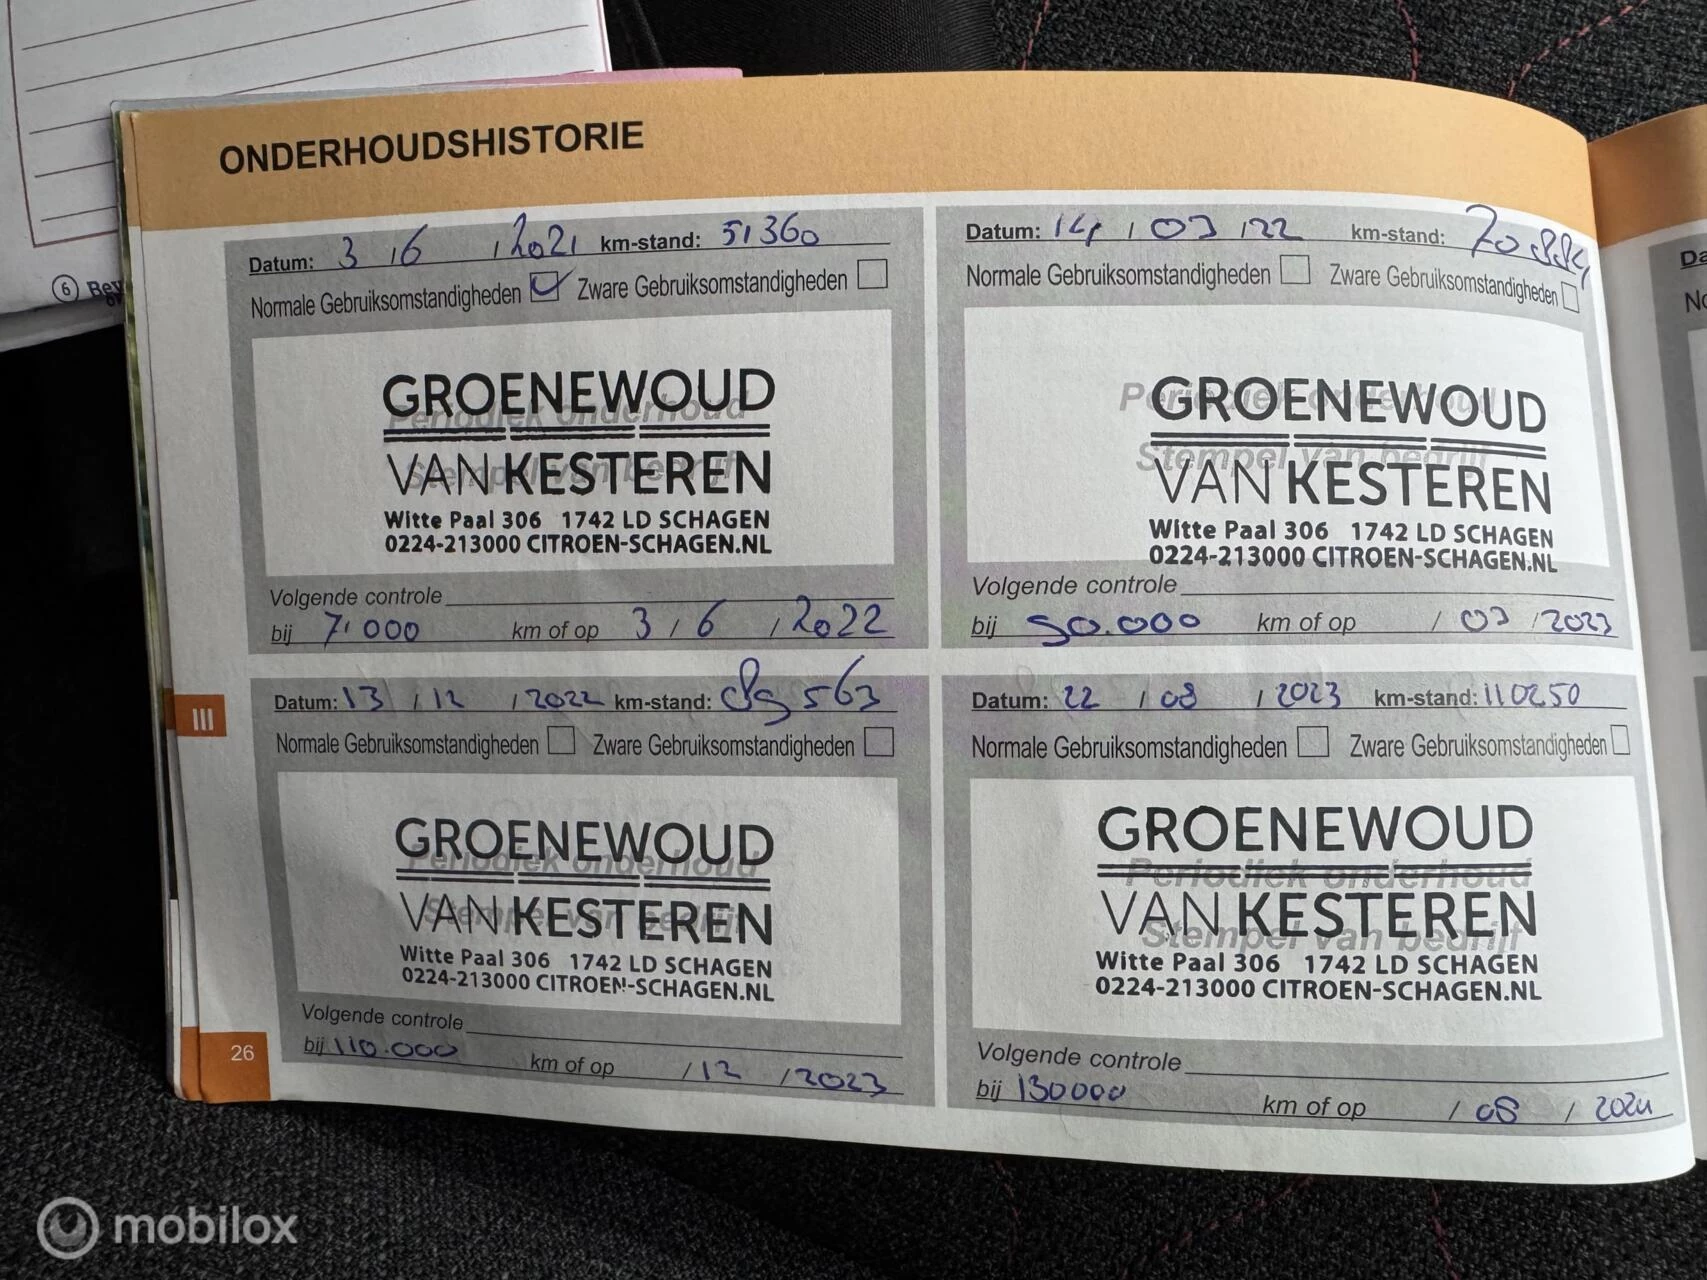 ONDERHOUDSHISTORIE
Datum: 3 / 6 / 2021 km-stand: 51360
Normale Gebruiksomstandigheden Zware Gebruiksomstandigheden
Periodiek onderhoud
Stempel van bedrijf
GROENEWOUD
VAN KESTEREN
Witte Paal 306 1742 LD SCHAGEN
0224-213000 CITROEN-SCHAGEN.NL
Volgende controle
bij 71.000 km of op 3 / 6 / 2022
Datum: 14 / 03 / 22 km-stand: 70884
Normale Gebruiksomstandigheden Zware Gebruiksomstandigheden
Periodiek onderhoud
Stempel van bedrijf
GROENEWOUD
VAN KESTEREN
Witte Paal 306 1742 LD SCHAGEN
0224-213000 CITROEN-SCHAGEN.NL
Volgende controle
bij 90.000 km of op / 03 / 2023
Datum: 13 / 12 / 2022 km-stand: 89563
Normale Gebruiksomstandigheden Zware Gebruiksomstandigheden
Periodiek onderhoud
Stempel van bedrijf
GROENEWOUD
VAN KESTEREN
Witte Paal 306 1742 LD SCHAGEN
0224-213000 CITROEN-SCHAGEN.NL
Volgende controle
bij 110.000 km of op / 12 / 2023
Datum: 22 / 08 / 2023 km-stand: 110250
Normale Gebruiksomstandigheden Zware Gebruiksomstandigheden
Periodiek onderhoud
Stempel van bedrijf
GROENEWOUD
VAN KESTEREN
Witte Paal 306 1742 LD SCHAGEN
0224-213000 CITROEN-SCHAGEN.NL
Volgende controle
bij 130000 km of op / 08 / 2024
III
26
6
mobilox